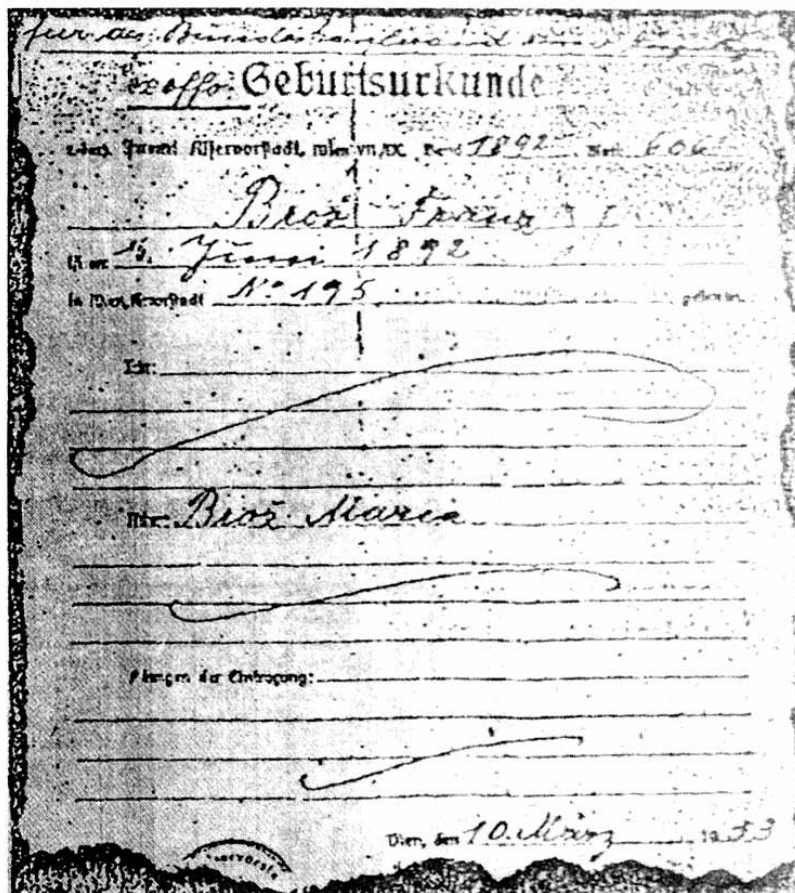 für das Bundeskanzleramt
ex offo. Geburtsurkunde
Alservorstadt, Wien VIII/IX. Band 1892 Blatt 606
Brož Franz
ist am 15. Juni 1892
in Wien, Alservorstadt No 195 geboren.
Vater:
Mutter: Brož Maria
Änderungen der Eintragung:
Wien, den 10. März 1933